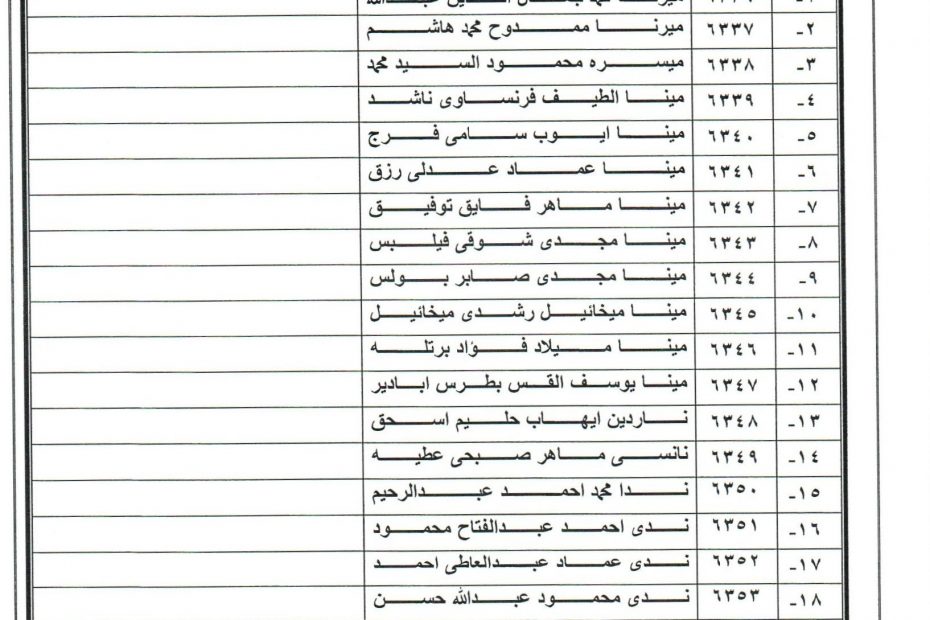 ٢- ٦٣٣٧ ميرنا ممدوح محمد هاشم
٣- ٦٣٣٨ ميسره محمود السيد محمد
٤- ٦٣٣٩ مينا الطيف فرنساوى ناشد
٥- ٦٣٤٠ مينا ايوب سامى فرج
٦- ٦٣٤١ مينا عماد عدلى رزق
٧- ٦٣٤٢ مينا ماهر فايق توفيق
٨- ٦٣٤٣ مينا مجدى شوقى فيلبس
٩- ٦٣٤٤ مينا مجدى صابر بولس
١٠- ٦٣٤٥ مينا ميخائيل رشدى ميخائيل
١١- ٦٣٤٦ مينا ميلاد فؤاد برتله
١٢- ٦٣٤٧ مينا يوسف القس بطرس ابادير
١٣- ٦٣٤٨ ناردين ايهاب حليم اسحق
١٤- ٦٣٤٩ نانسى ماهر صبحى عطيه
١٥- ٦٣٥٠ ندا محمد احمد عبدالرحيم
١٦- ٦٣٥١ ندى احمد عبدالفتاح محمود
١٧- ٦٣٥٢ ندى عماد عبدالعاطى احمد
١٨- ٦٣٥٣ ندى محمود عبدالله حسن